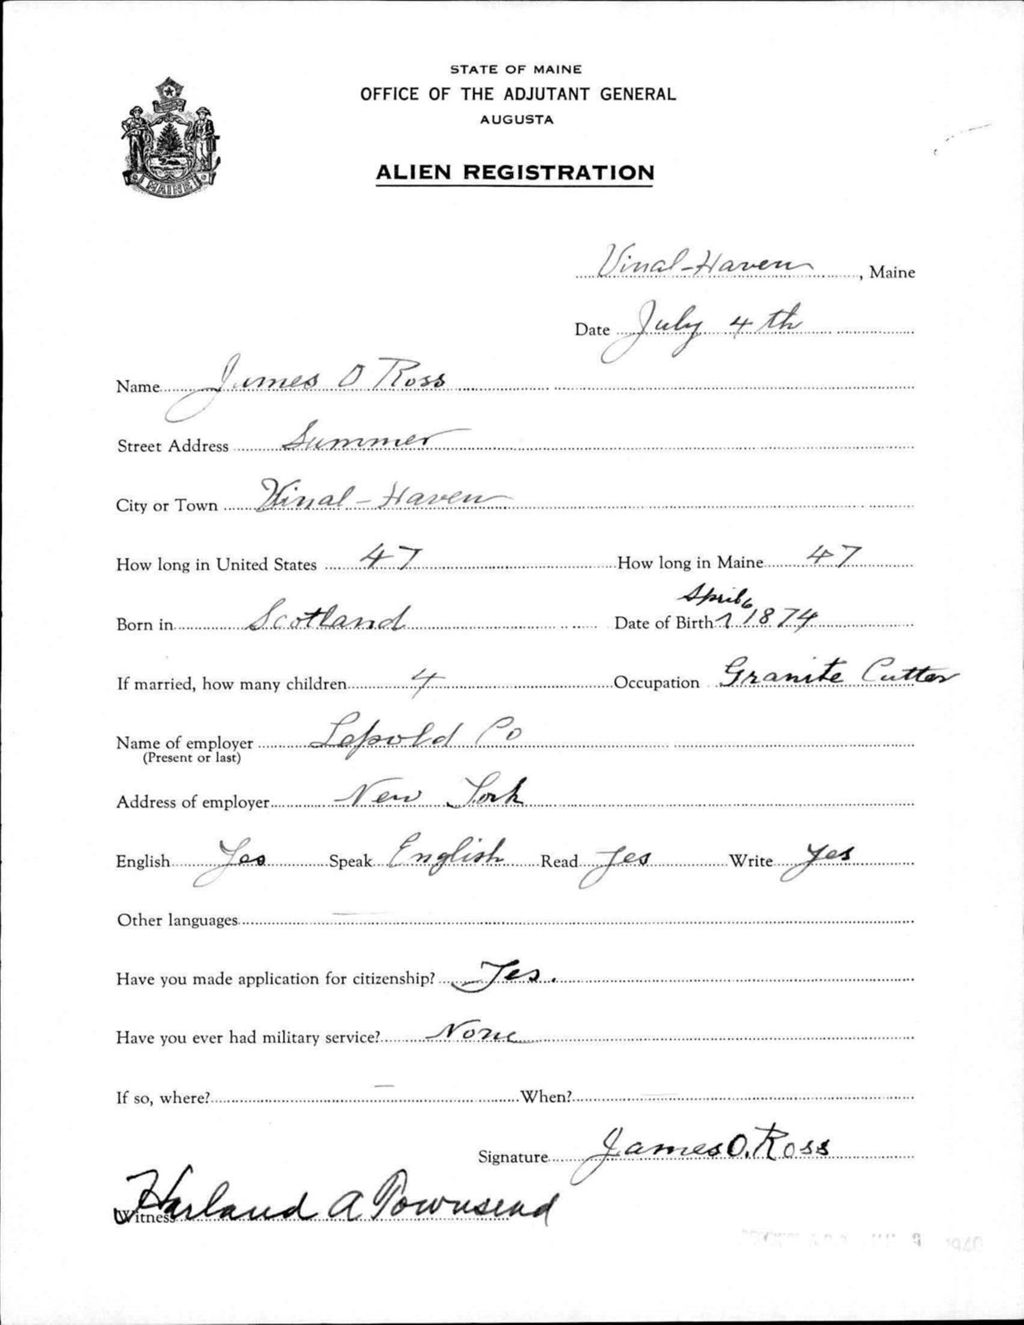 STATE OF MAINE
OFFICE OF THE ADJUTANT GENERAL
AUGUSTA
ALIEN REGISTRATION
MAINE
Vinal-Haven, Maine
Date July 4th
Name James O Ross
Street Address Summer
City or Town Vinal-Haven
How long in United States 47 How long in Maine 47
Born in Scotland Date of Birth April 6 1874
If married, how many children 4 Occupation Granite Cutter
Name of employer Lepold Co
(Present or last)
Address of employer New York
English Yes Speak English Read Yes Write Yes
Other languages —
Have you made application for citizenship? Yes.
Have you ever had military service? None
If so, where? — When?
Signature James O. Ross
Witness Harland A Townsend